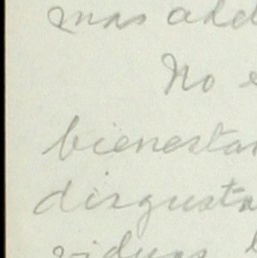 mas ade
No e
bienestar
disgusta